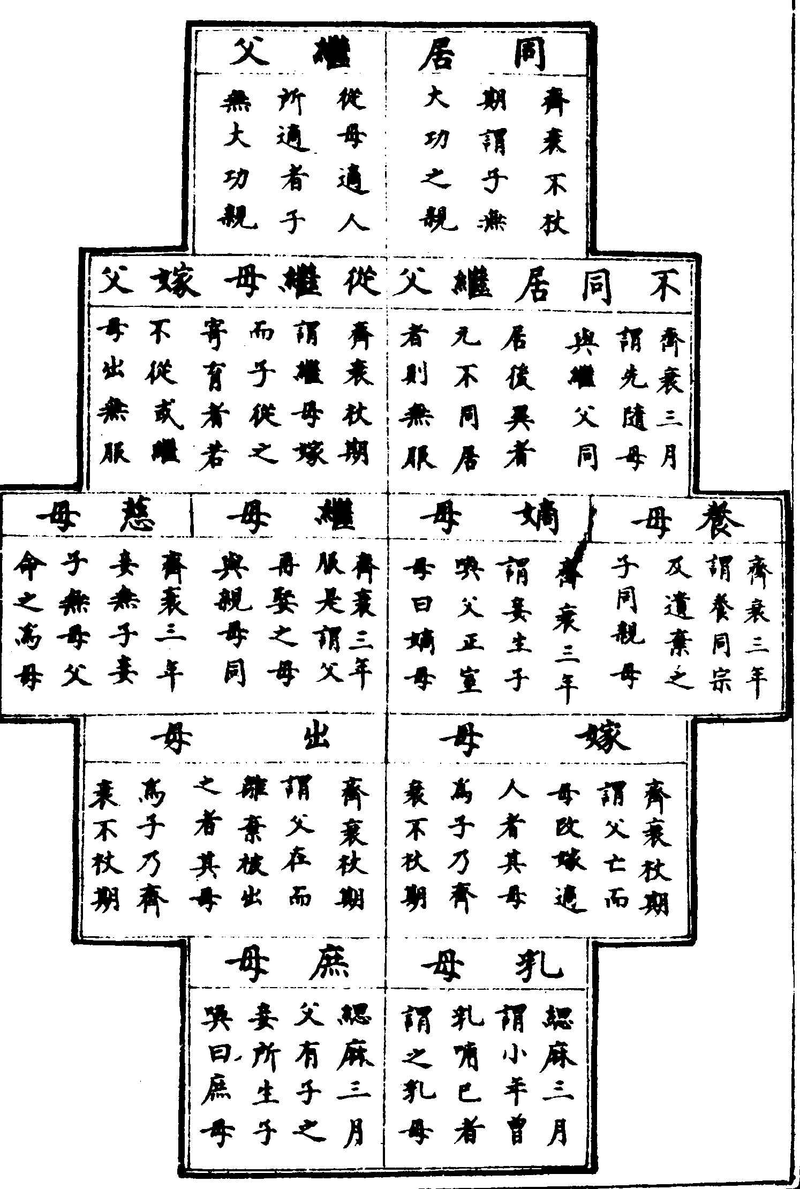 同居繼父
齊衰不杖
期謂子無
大功之親
從母適人
所適者子
無大功親
不同居繼父
齊衰三月
謂先隨母
與繼父同
居後異者
元不同居
者則無服
從繼母嫁父
齊衰杖期
謂繼母嫁
而子從之
寄育者若
不從或繼
母出無服
養母
齊衰三年
謂養同宗
及遺棄之
子同親母
嫡母
齊衰三年
謂妾生子
喚父正室
母曰嫡母
繼母
齊衰三年
服是謂父
再娶之母
與親母同
慈母
齊衰三年
妾無子妾
子無母父
命之為母
嫁母
齊衰杖期
謂父亡而
母改嫁適
人者其母
為子乃齊
衰不杖期
出母
齊衰杖期
謂父在而
離棄被出
之者其母
為子乃齊
衰不杖期
乳母
緦麻三月
謂小年曾
乳哺已者
謂之乳母
庶母
緦麻三月
父有子之
妾所生子
喚曰庶母